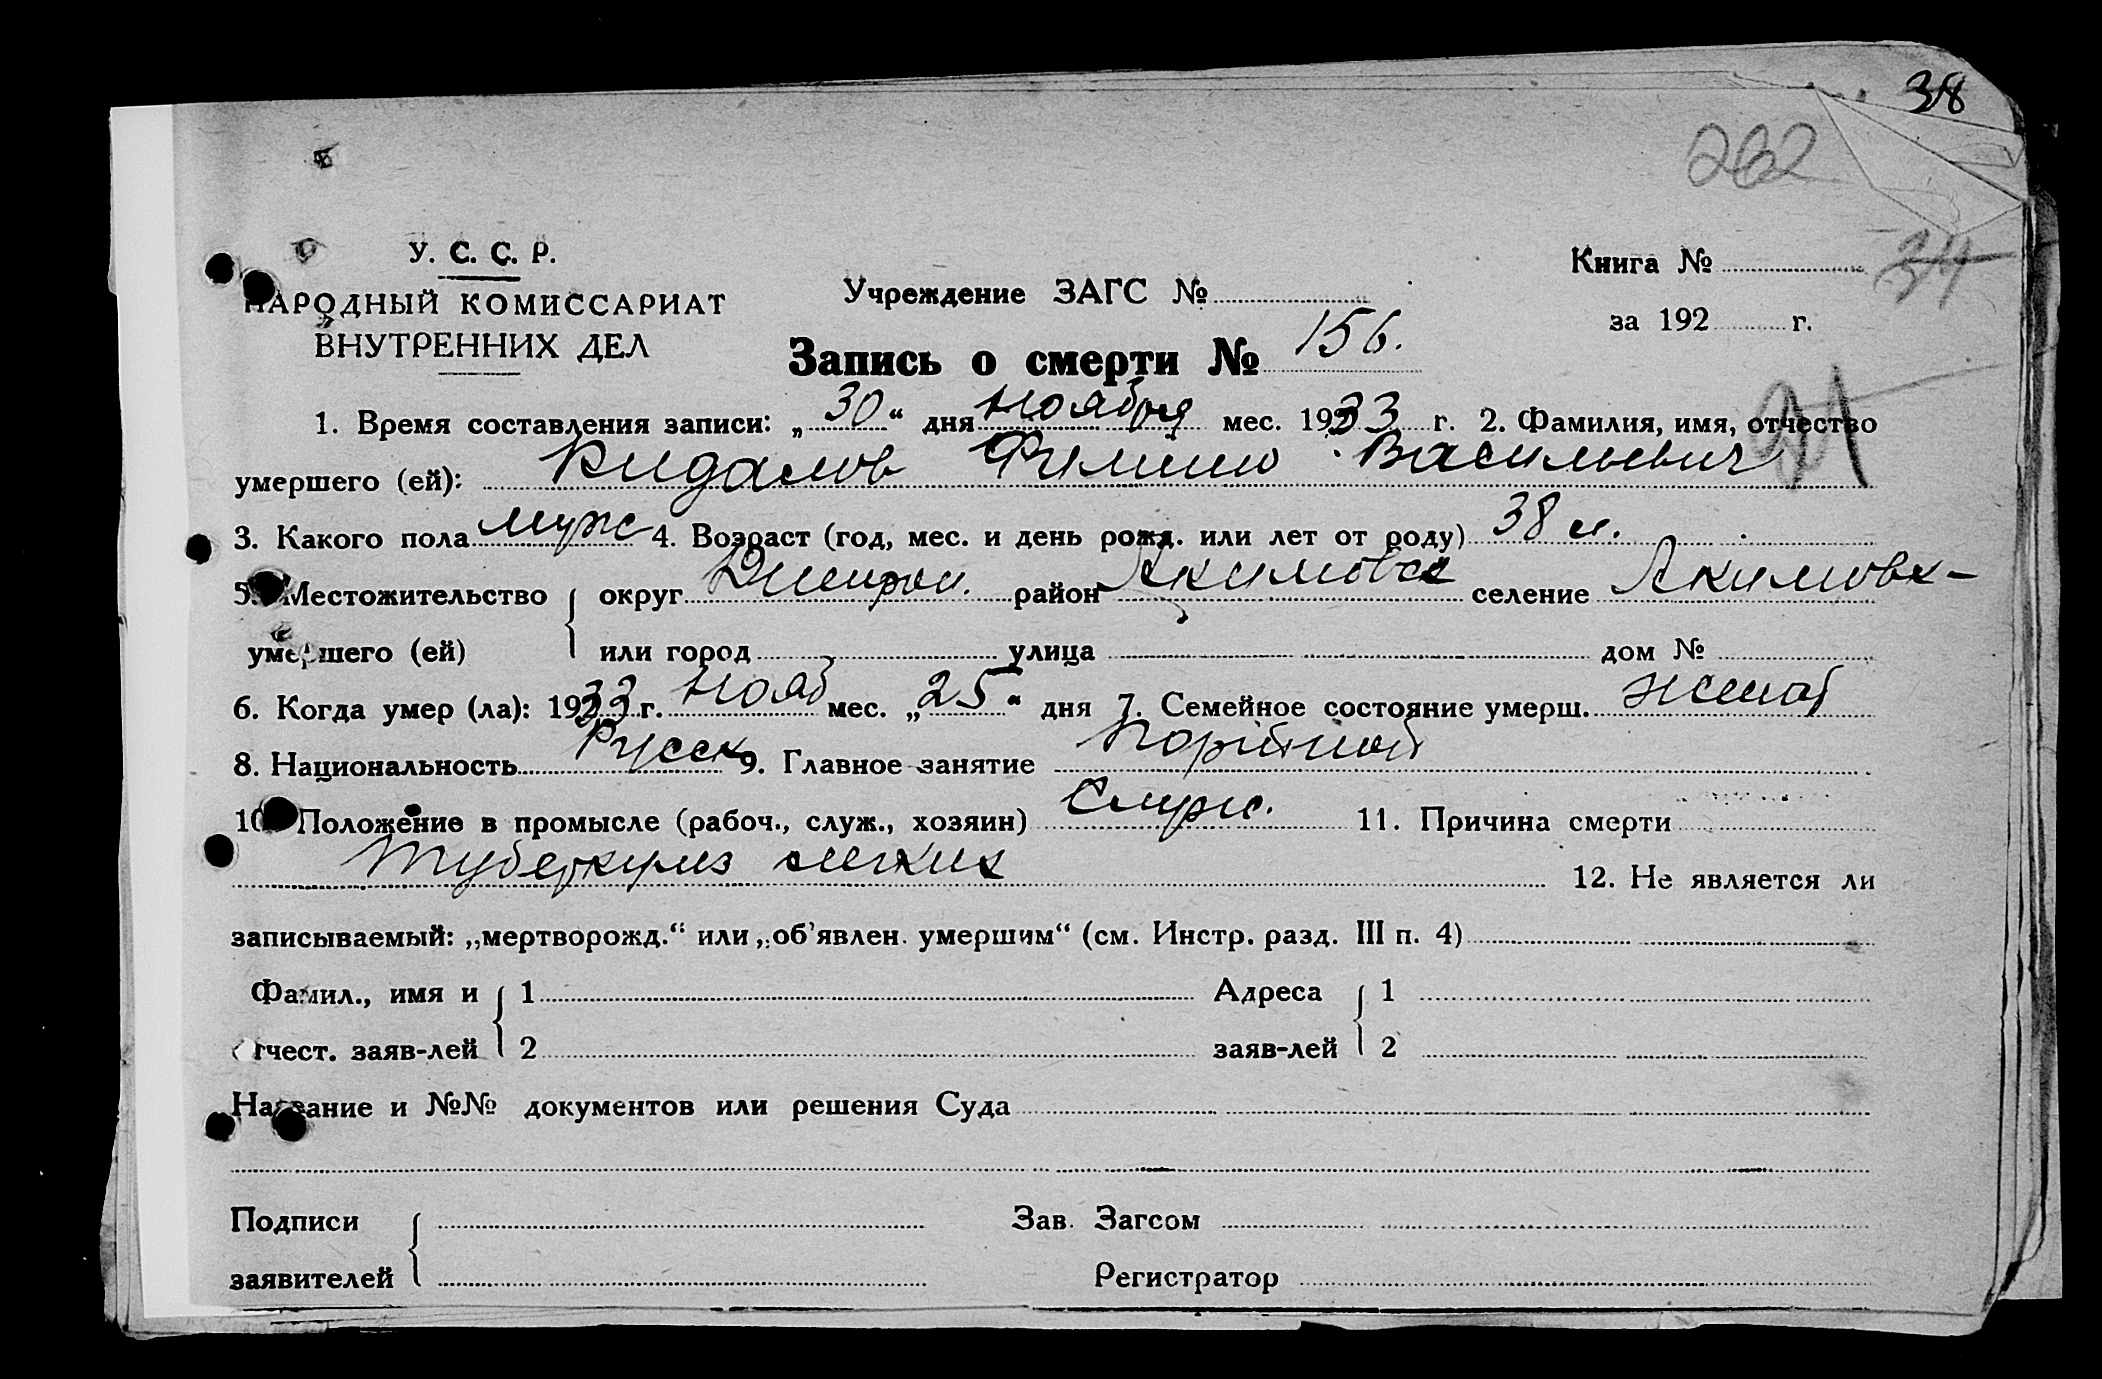 38
232
У. С. С. Р.
НАРОДНЫЙ КОМИССАРИАТ
ВНУТРЕННИХ ДЕЛ
Учреждение ЗАГС №
Книга №
за 192 г.
Запись о смерти № 156.
1. Время составления записи: „30“ дня ноября мес. 1933 г. 2. Фамилия, имя, отчество
умершего (ей): Кидалов Филипп Васильевич
3. Какого пола муж 4. Возраст (год, мес. и день рожд. или лет от роду) 38 л.
5. Местожительство округ Днепроп. район Акимовск селение Акимовк-
умершего (ей) или город улица дом №
6. Когда умер (ла): 1933 г. нояб мес. „25“ дня 7. Семейное состояние умерш. женат
8. Национальность Русск 9. Главное занятие Портной
10. Положение в промысле (рабоч., служ., хозяин) Служ. 11. Причина смерти
туберкулез легких 12. Не является ли
записываемый: „мертворожд.“ или „об'явлен. умершим“ (см. Инстр. разд. III п. 4)
Фамил., имя и 1 Адреса 1
отчест. заяв-лей 2 заяв-лей 2
Название и №№ документов или решения Суда
Подписи Зав. Загсом
заявителей Регистратор